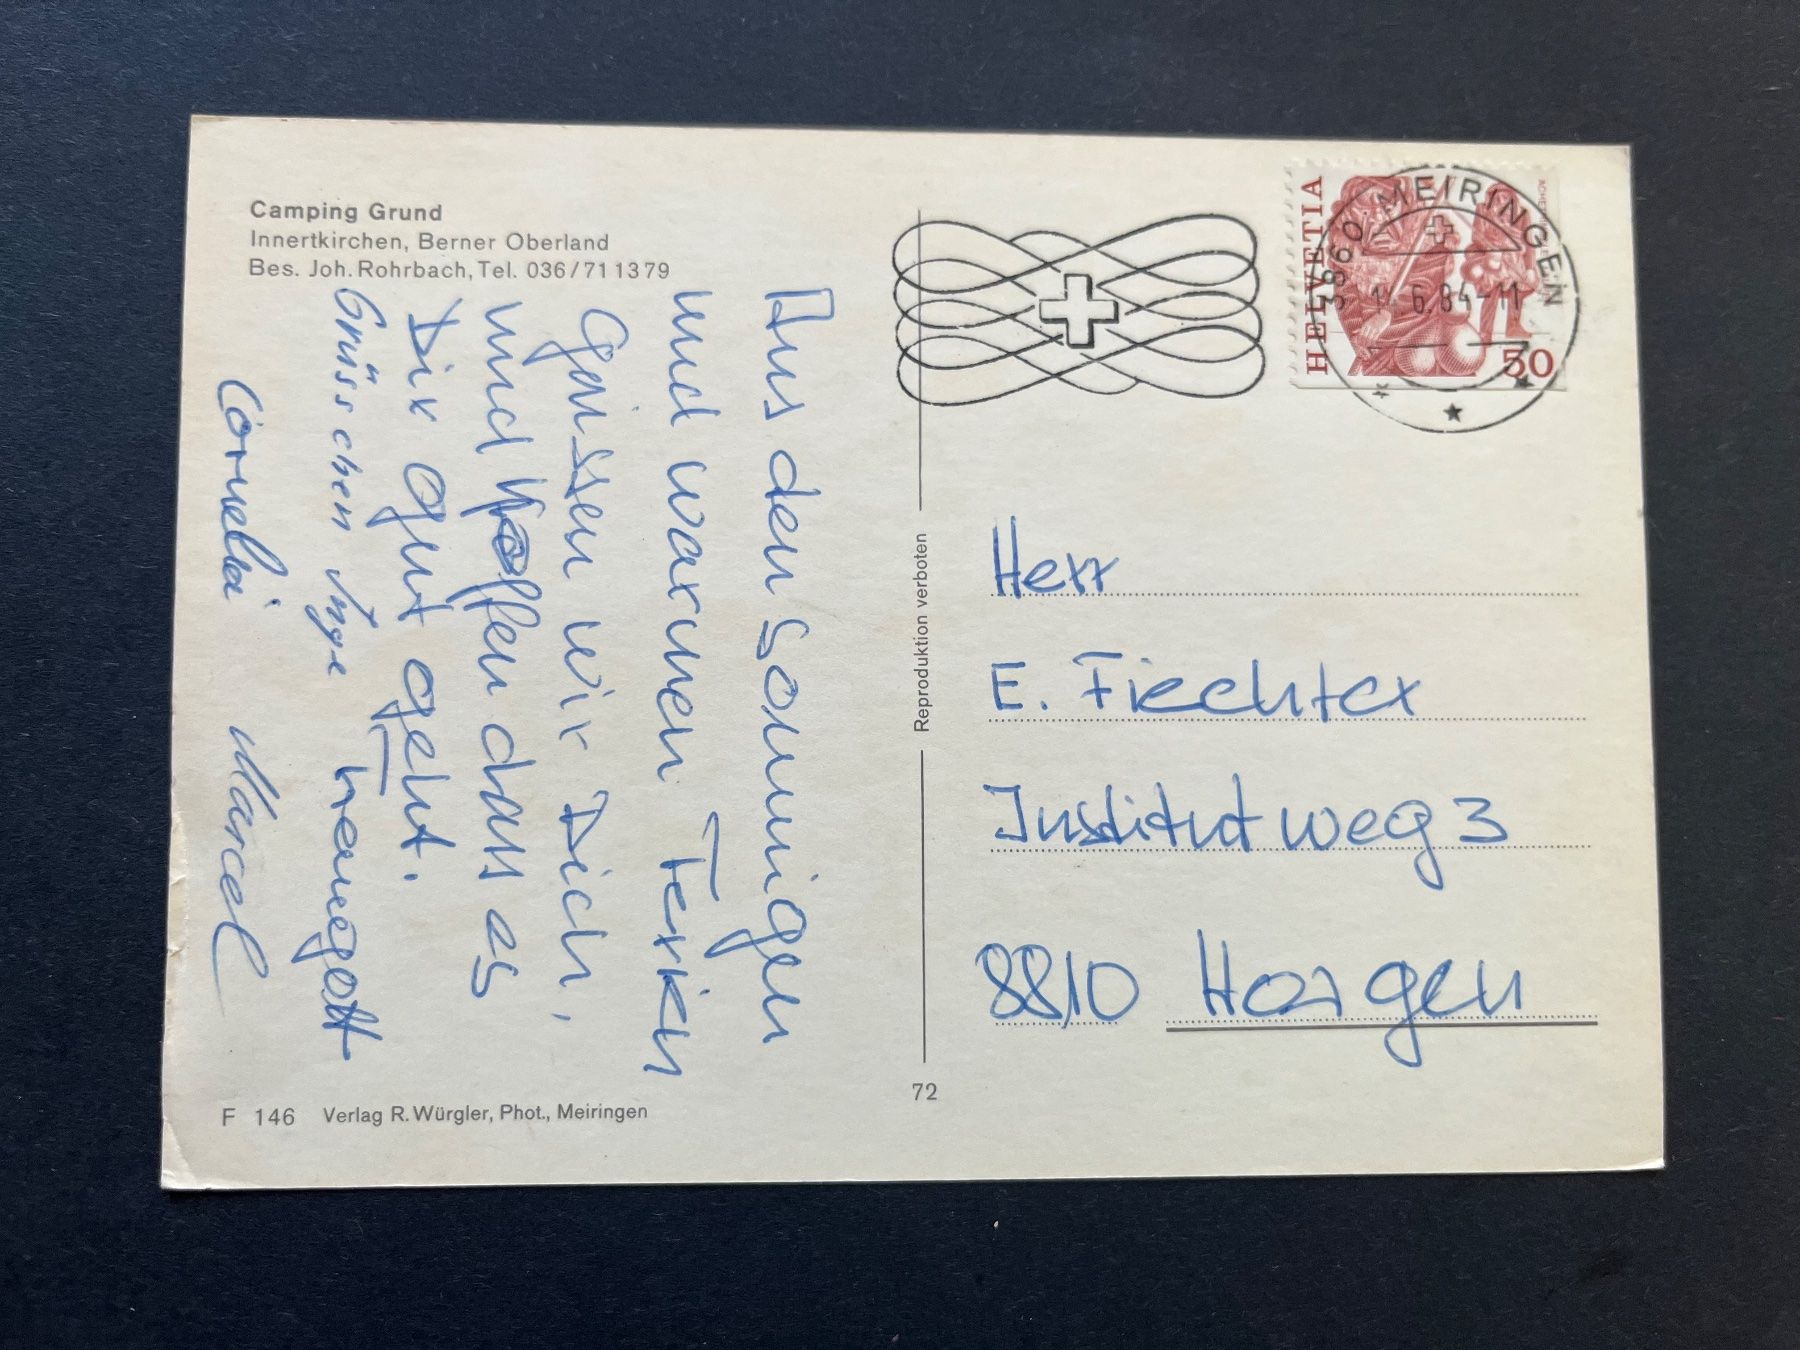 Camping Grund
Innertkirchen, Berner Oberland
Bes. Joh. Rohrbach, Tel. 036/711379
Aus den sonnigen
und warmen Ferien
grüssen wir Dich,
und hoffen dass es
Dir gut geht.
Grüsschen Inge
Cornelia Marcel
F 146 Verlag R. Würgler, Phot., Meiringen
Reproduktion verboten
72
HELVETIA
50
3860 MEIRINGEN
6.84-11
Herr
E. Fiechter
Institutweg 3
8810 Horgen